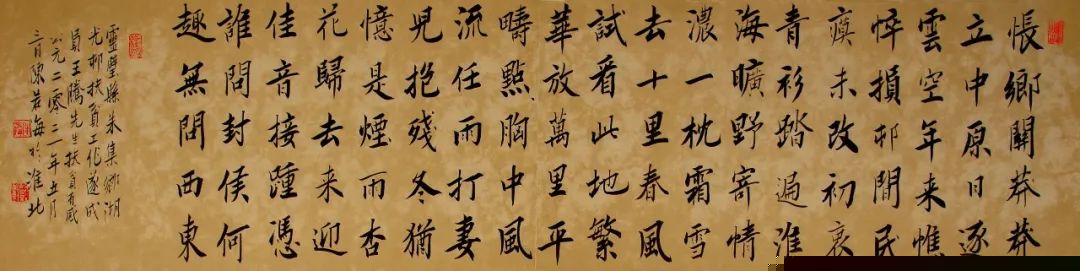 悵鄉關莽莽
立中原日逐
雲空年来憔
悴損邨間民
瘼未改初衷
青衫踏遍淮
海曠野寄情
濃一枕霜雪
去十里春風
試看此地繁
華放萬里平
疇點胸中風
流任雨打妻
兒抱殘冬猶
憶是煙雨杏
花歸去来迎
佳音接踵憑
誰問封侯何
趣無問西東
靈璧縣朱集鄉湖
尤邨扶貧工作隊成
員王騰先生扶貧有感
公元二零二一年五月
三日陳海於淮北